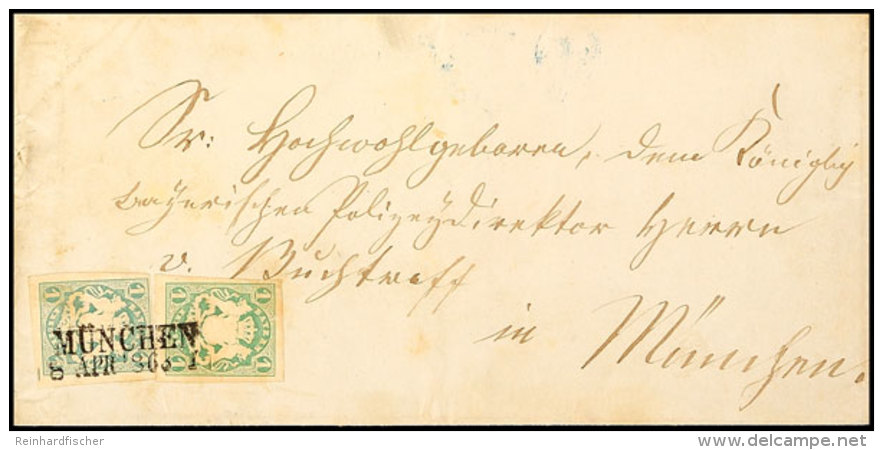 Sr: Hochwohlgeboren, dem Königlich
bayerischen Polizeydirektor Herrn
v.
in München.
1 1 1 1
MÜNCHEN
8 APR 868 1
1 1 1 1
Reinhardfischer
www.delcampe.net